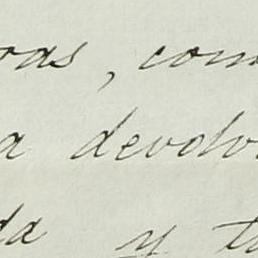 oras, com
a devolv
da y t